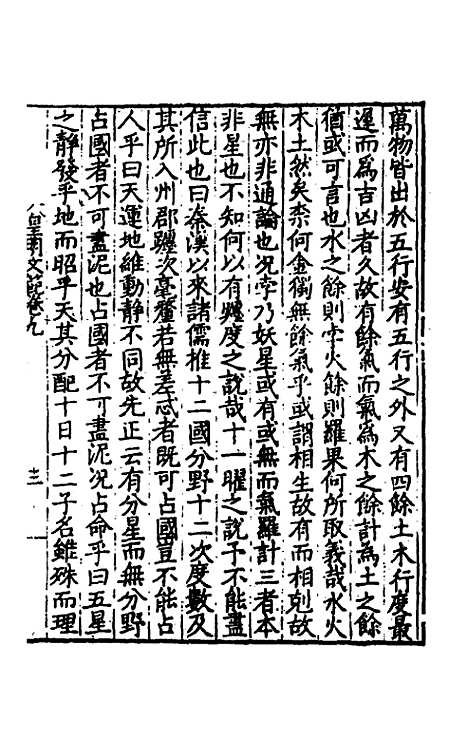 萬物皆出於五行安有五行之外又有四餘土木行度最
遲而為吉凶者久故有餘氣而氣為木之餘計為土之餘
猶或可言也水之餘則孛火餘則羅果何所取義哉水火
木土然矣柰何金獨無餘氣乎或謂相生故有而相剋故
無亦非通論也况孛乃妖星或有或無而氣羅計三者本
非星也不知何以有躔度之說哉十一曜之說予不能盡
信此也曰秦漢以來諸儒推十二國分野十二次度數及
其所入州郡躔次毫釐若無差忒者既可占國豈不能占
人乎曰天運地維動静不同故先正云有分星而無分野
占國者不可盡泥也占國者不可盡泥况占命乎曰五星
之静發乎地而昭乎天其分配十日十二子名雖殊而理
文範卷九
十三